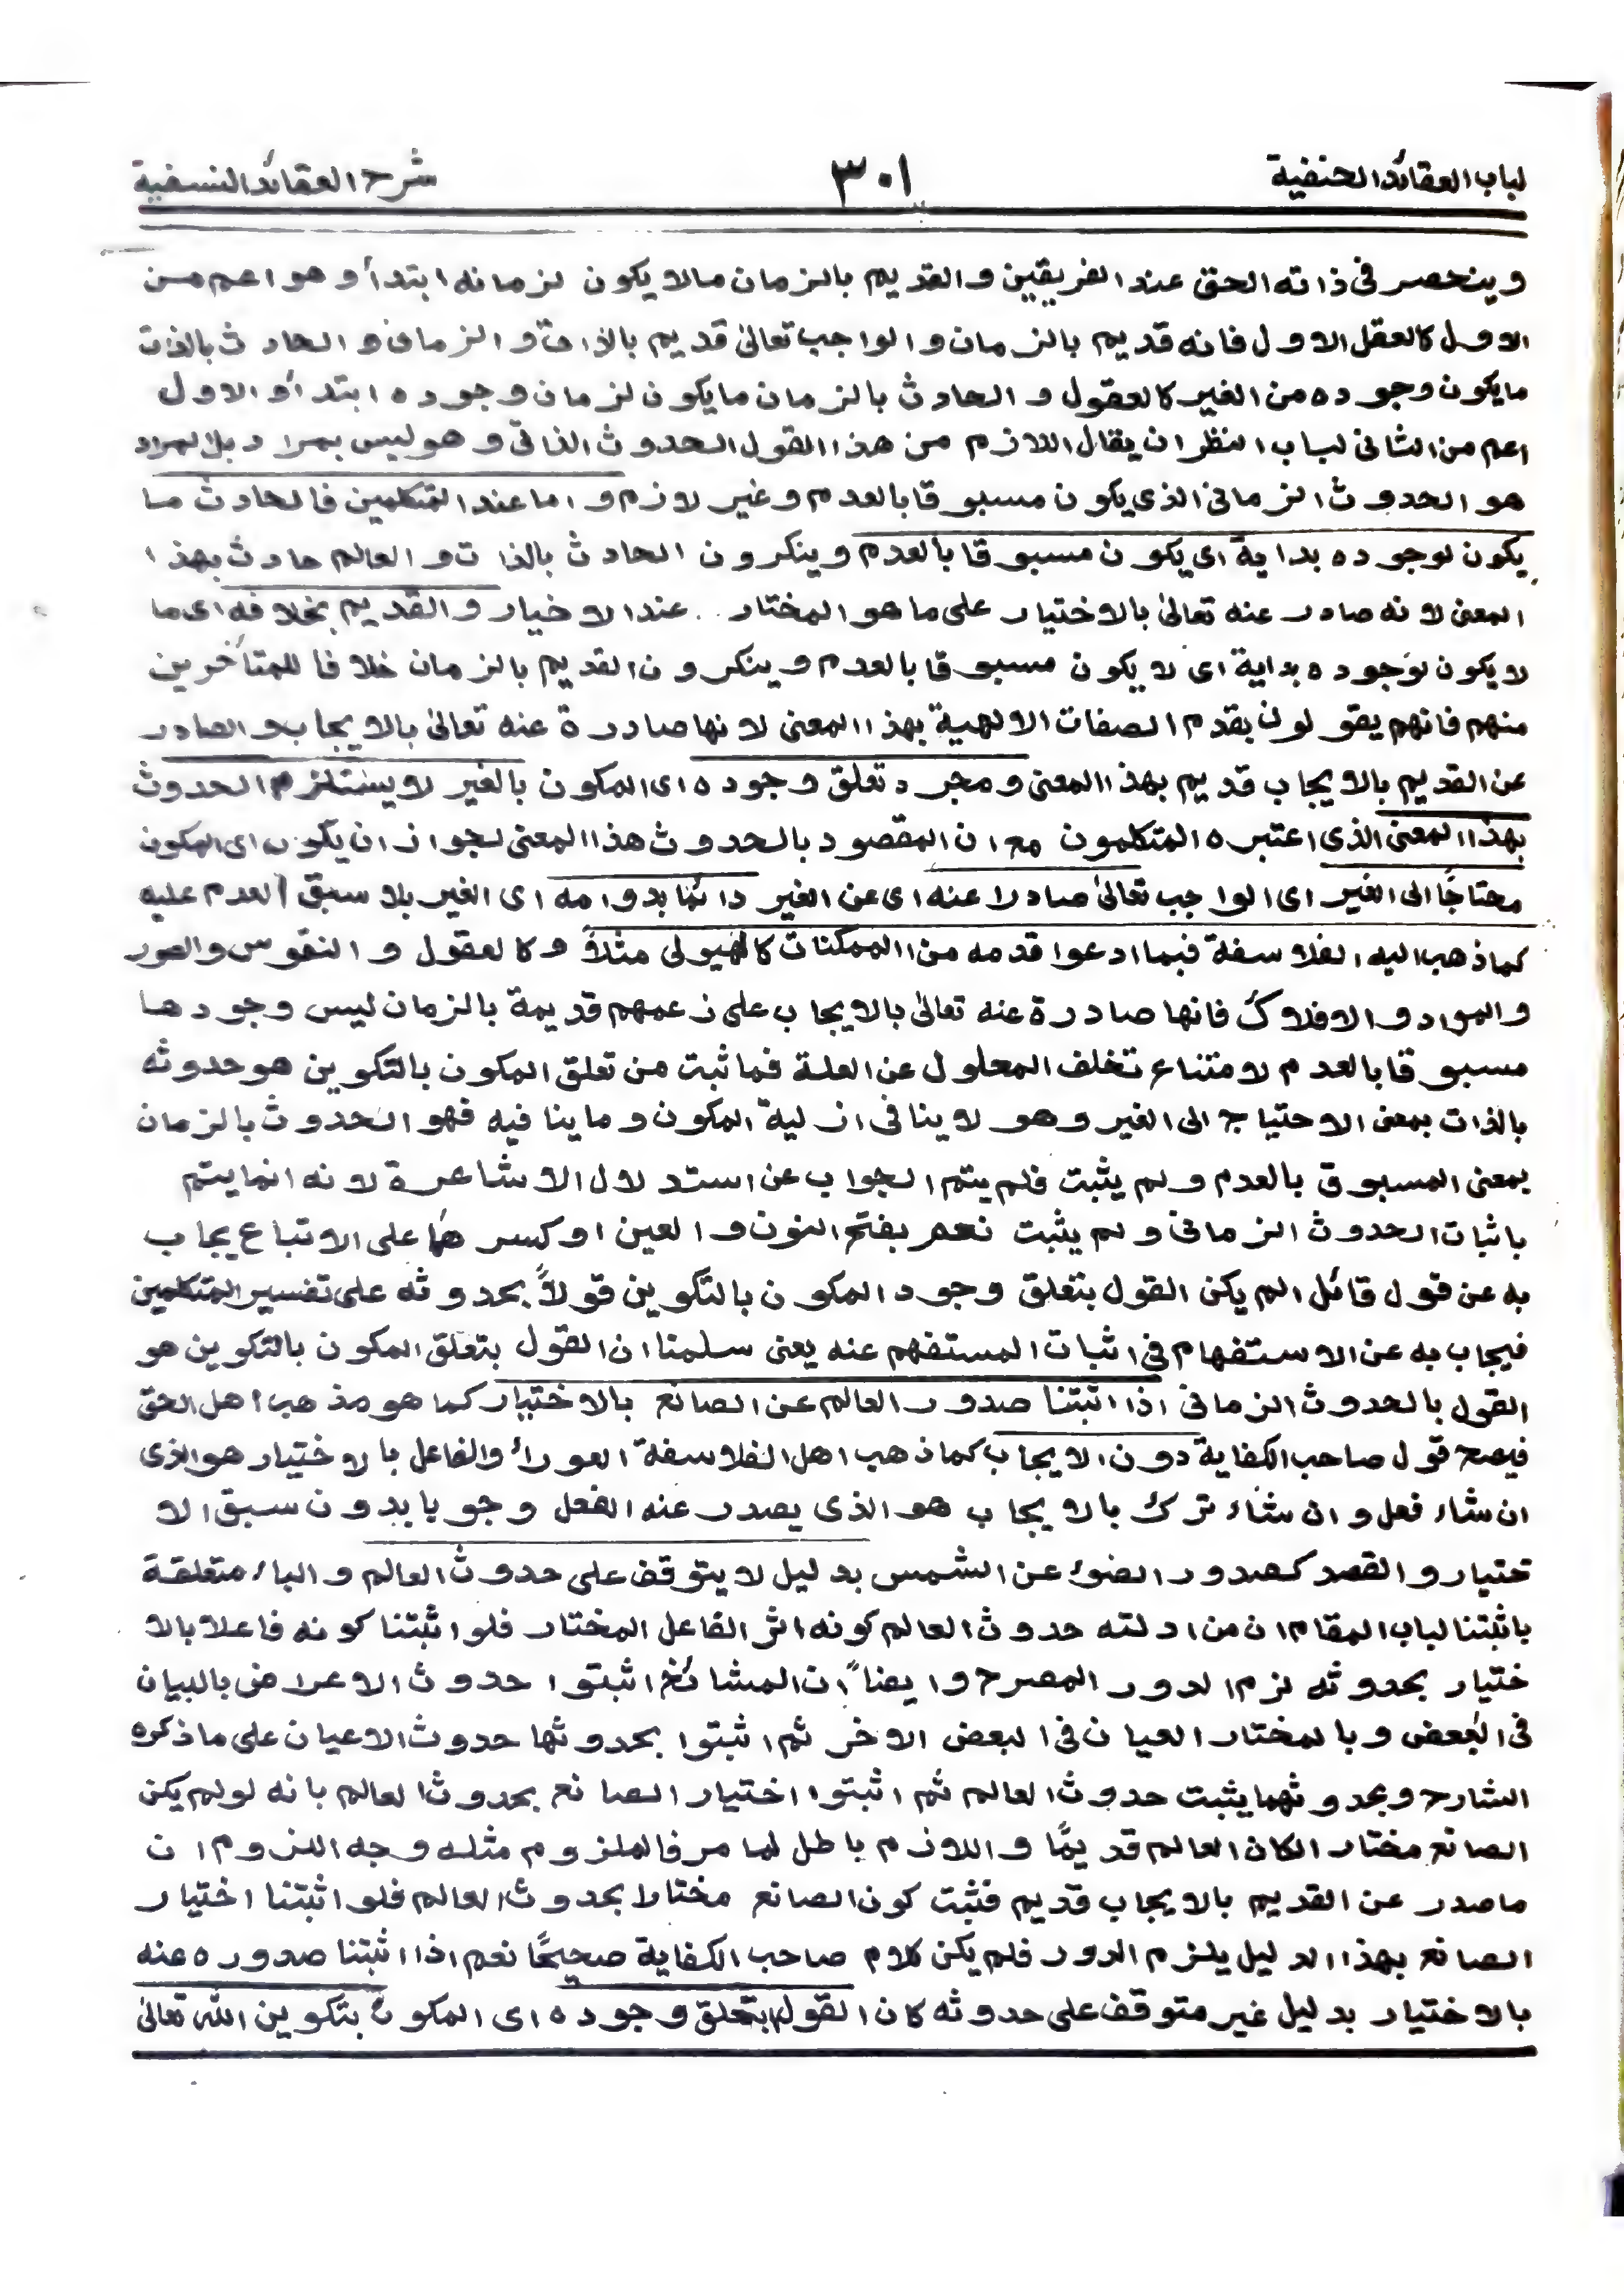 لباب العقائد الحنفية ٣٠١ شرح العقائد النسفية
وينحصر فى ذاته الحق عند الفريقين والقديم بالزمان مالا يكون لزمانه ابتدأ وهو اعم من
الاول كالعقل الاول فانه قديم بالزمان والواجب تعالىٰ قديم بالذات والزمان والحادث بالذات
مايكون وجوده من الغير كالعقول والحادث بالزمان مايكون لزمان وجوده ابتدأ والاول
اعم من الثانى لباب النظر ان يقال اللازم من هذا القول الحدوث الذاتى وهو ليس بمراد بل المراد
هو الحدوث الزمانى الذى يكون مسبوقا بالعدم وغير لازم واما عند المتكلمين فالحادث ما
يكون لوجوده بداية اى يكون مسبوقا بالعدم وينكرون الحادث بالذات والعالم حادث بهذا
المعنى لانه صادر عنه تعالىٰ بالاختيار على ما هو المختار عند الاخيار والقديم بخلافه اى ما
لا يكون لوجوده بداية اى لا يكون مسبوقا بالعدم وينكرون القديم بالزمان خلافا للمتأخرين
منهم فانهم يقولون بقدم الصفات الالهية بهذا المعنى لانها صادرة عنه تعالىٰ بالايجاب والصادر
عن القديم بالايجاب قديم بهذا المعنى ومجرد تعلق وجوده اى المكون بالغير لا يستلزم الحدوث
بهذا المعنى الذى اعتبره المتكلمون مع ان المقصود بالحدوث هذا المعنى لجواز ان يكون اى المكون
محتاجًا الى الغير اى الواجب تعالىٰ صادرا عنه اى عن الغير دائما بدوامه اى الغير بلا سبق العدم عليه
كما ذهب اليه الفلاسفة فيما ادعوا قدمه من الممكنات كالهيولى مثلاً وكالعقول والنفوس والصور
والمواد والافلاك فانها صادرة عنه تعالىٰ بالايجاب على زعمهم قديمة بالزمان ليس وجودها
مسبوقا بالعدم لامتناع تخلف المعلول عن العلة فما ثبت من تعلق المكون بالتكوين هو حدوثه
بالذات بمعنى الاحتياج الى الغير وهو لا ينافى ازلية المكون وما ينافيه فهو الحدوث بالزمان
بمعنى المسبوق بالعدم ولم يثبت فلم يتم الجواب عن استدلال الاشاعرة لانه انما يتم
باثبات الحدوث الزمانى ولم يثبت نعم بفتح النون والعين او كسرهما على الاتباع يجاب
به عن قول قائل الم يكن القول بتعلق وجود المكون بالتكوين قولاً بحدوثه على تفسير المتكلمين
فيجاب به عن الاستفهام فى اثبات المستفهم عنه يعنى سلمنا ان القول بتعلق المكون بالتكوين هو
القول بالحدوث الزمانى اذا اثبتنا صدور العالم عن الصانع بالاختيار كما هو مذهب اهل الحق
فيصح قول صاحب الكفاية دون الايجاب كما ذهب اهل الفلاسفة العوراء والفاعل بالاختيار هو الذى
ان شاء فعل وان شاء ترك بالايجاب هو الذى يصدر عنه الفعل وجوبا بدون سبق الا
ختيار والقصد كصدور الضوء عن الشمس بدليل لا يتوقف على حدوث العالم والباء متعلقة
باثبتنا لباب المقام ان من ادلته حدوث العالم كونه اثر الفاعل المختار فلو اثبتنا كونه فاعلا بالا
ختيار بحدوثه لزم الدور المصرح وايضاً ان المشائخ اثبتوا حدوث الاعراض بالبيان
فى البعض وبالمختار العيان فى البعض الاخر ثم اثبتوا بحدوثها حدوث الاعيان على ماذكره
الشارح وبحدوثهما يثبت حدوث العالم ثم اثبتوا اختيار الصانع بحدوث العالم بانه لولم يكن
الصانع مختارا لكان العالم قديمًا واللازم باطل لما مر فالملزوم مثله وجه اللزوم ان
ماصدر عن القديم بالايجاب قديم فثبت كون الصانع مختارا بحدوث العالم فلو اثبتنا اختيار
الصانع بهذا الدليل يلزم الدور فلم يكن كلام صاحب الكفاية صحيحًا نعم اذا اثبتنا صدوره عنه
بالاختيار بدليل غير متوقف على حدوثه كان القول بتعلق وجوده اى المكون بتكوين الله تعالىٰ